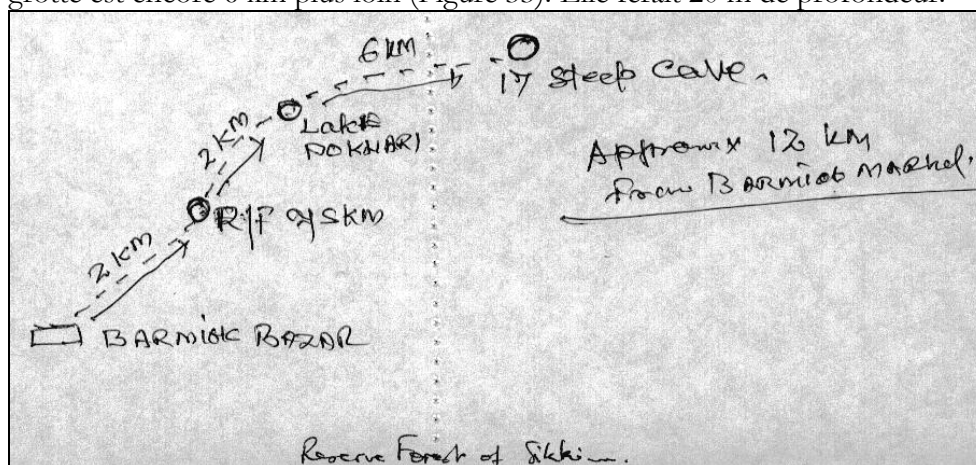 grotte est encore 6 km plus loin (Figure 3b). Elle ferait 20 m de profondeur.
6 KM
17 Steep Cave.
2 KM
Lake
POKHARI
Appronx 12 KM
From BARMIOK Market.
R/F
2 KM
BARMIOK BAZAR
Reserve Forest of Sikkim.